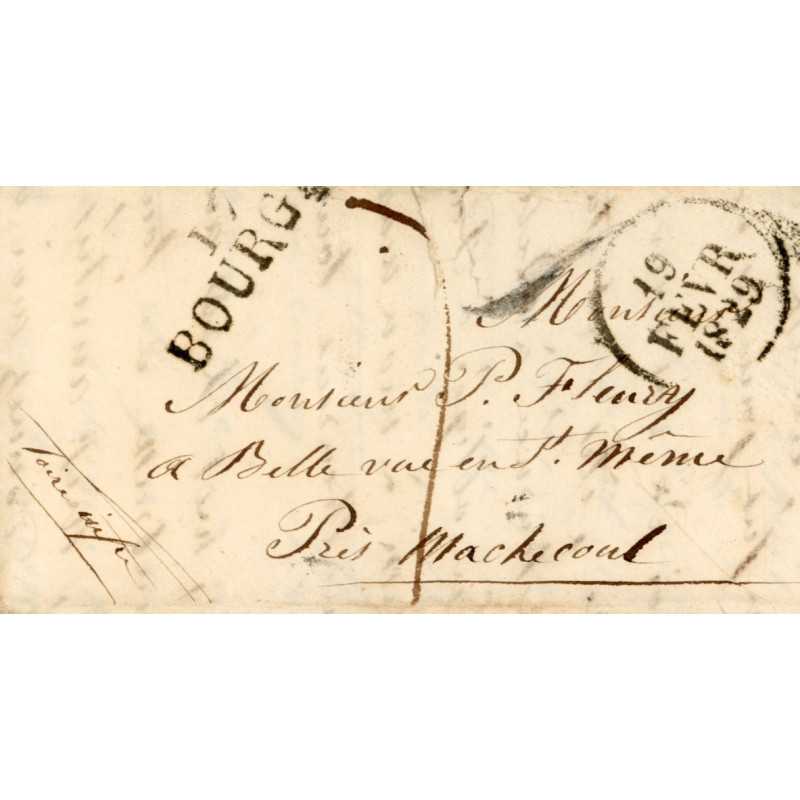 17
BOURG
19
FEVR
1829
Monsieur
Monsieur P. Fleury
a Belle vue en St. Même
Près Machecoul
Loire infre